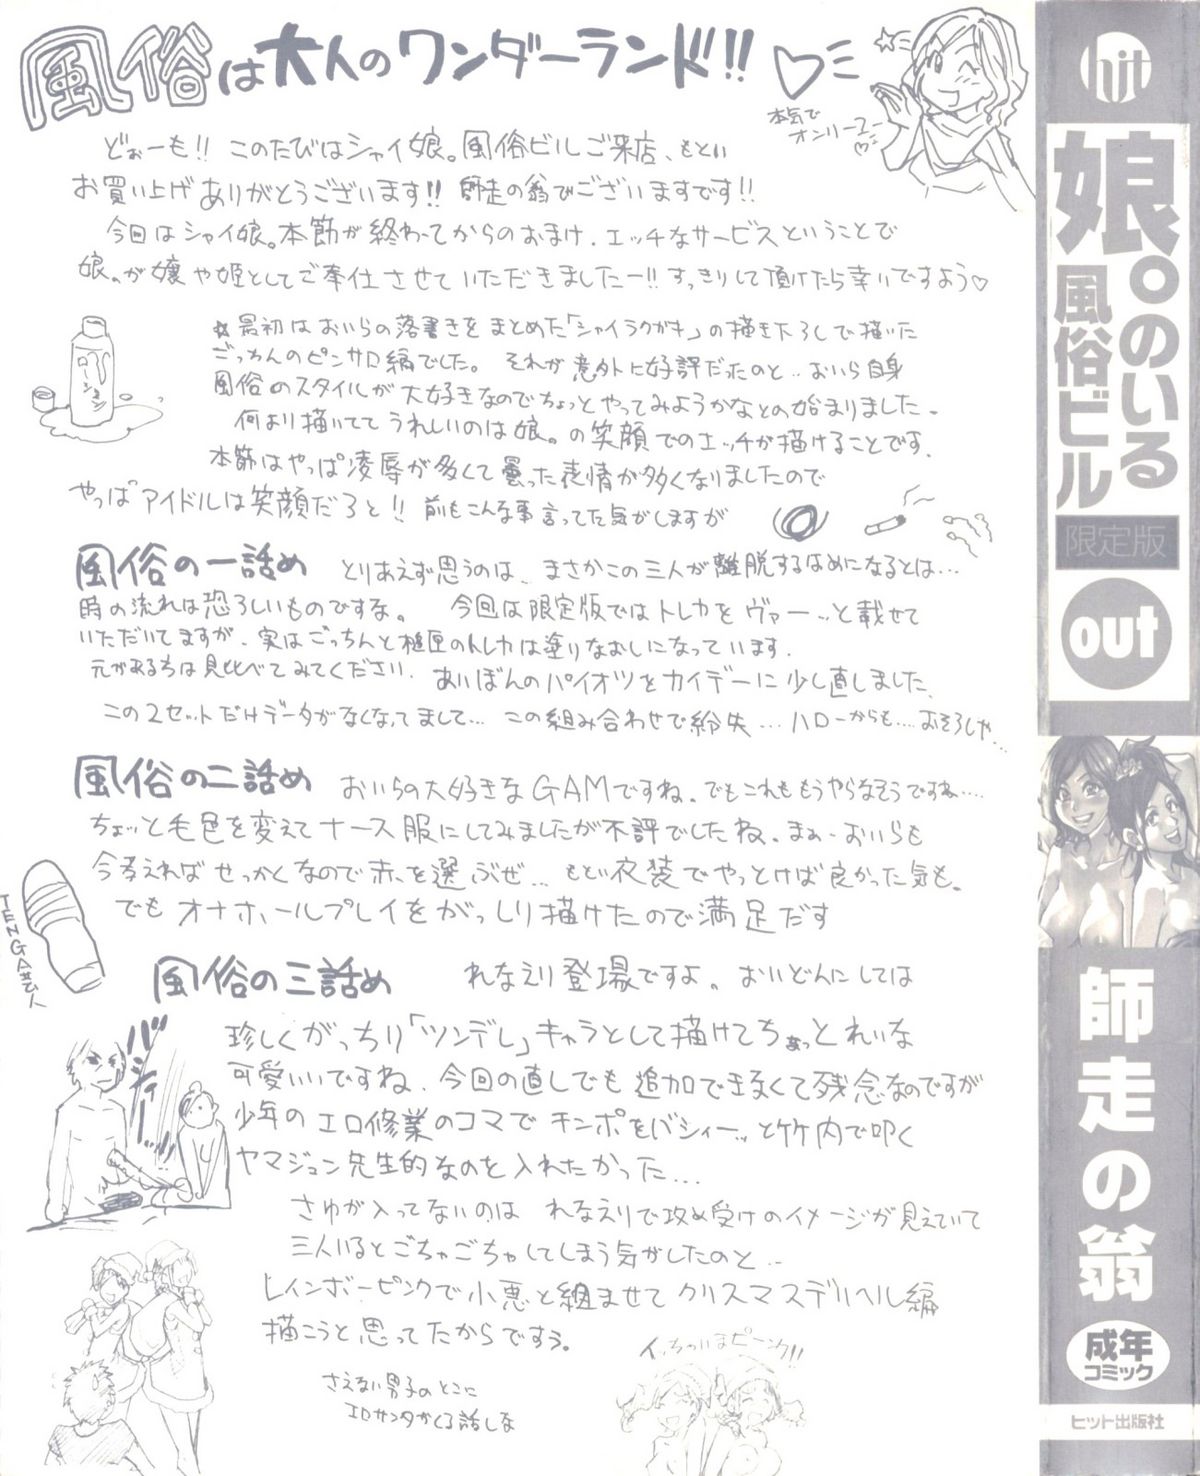 風俗は大人のワンダーランド!!♡
本気で
オンリーユー♡
どぉーも!! このたびはシャイ娘。風俗ビルご来店、もとい
お買い上げありがとうございます!! 師走の翁でございますです!!
今回はシャイ娘。本節が終わってからのおまけ、エッチなサービスということで
娘。が嬢や姫としてご奉仕させていただきましたー!! すっきりして頂けたら幸いですよう♡
ローション
☆最初はおいらの落書きをまとめた「シャイラクガキ」の描き下ろしで描いた
ごっちんのピンサロ編でした。それが意外に好評だったのと‥おいら自身
風俗のスタイルが大好きなのでちょっとやってみようかなとの始まりました。
何より描いててうれしいのは娘。の笑顔でのエッチが描けることです。
本節はやっぱ凌辱が多くて曇った表情が多くなりましたので
やっぱアイドルは笑顔だろと!! 前もこんな事言ってた気がしますが
風俗の一話め とりあえず思うのは、まさかこの三人が離脱するはめになるとは…
時の流れは恐ろしいものですな。 今回は限定版ではトレカをヴァーッと載せて
いただいてますが、実はごっちんと
のトレカは塗りなおしになっています。
元がある方は見比べてみてください。あいぼんのパイオツをカイデーに少し直しました。
この2セットだけデータがなくなってまして… この組み合わせで紛失…ハローからも‥‥おそろしや…
風俗の二話め おいらの大好きなGAMですね。でもこれももうやらなそうですね‥‥
ちょっと毛色を変えてナース服にしてみましたが不評でしたね。まぁ‥おいらも
今考えればせっかくなので赤を選ぶぜ… もとい衣装でやっとけば良かった気も。
でもオナホールプレイをがっしり描けたので満足だす
TENGA芸人
風俗の三話め れなえり登場ですよ。おいどんにしては
珍しくがっちり「ツンデレ」キャラとして描けてちょっとれいな
可愛いいですね。今回の直しでも追加できなくて残念なのですが
少年のエロ修業のコマでチンポをバシィーッと竹内で叩く
ヤマジュン先生的なのを入れたかった…
バシィーッ
さゆが入ってないのは れなえりで攻め受けのイメージが見えていて
三人いるとごちゃごちゃしてしまう気がしたのと‥
レインボーピンクで小悪と組ませてクリスマスデリヘル編
描こうと思ってたからですぅ。
イッちゃいまピーンク!!
さえない男子のとこに
エロサンタがくる話しな
hit
娘。のいる
風俗ビル
限定版
out
師走の翁
成年
コミック
ヒット出版社